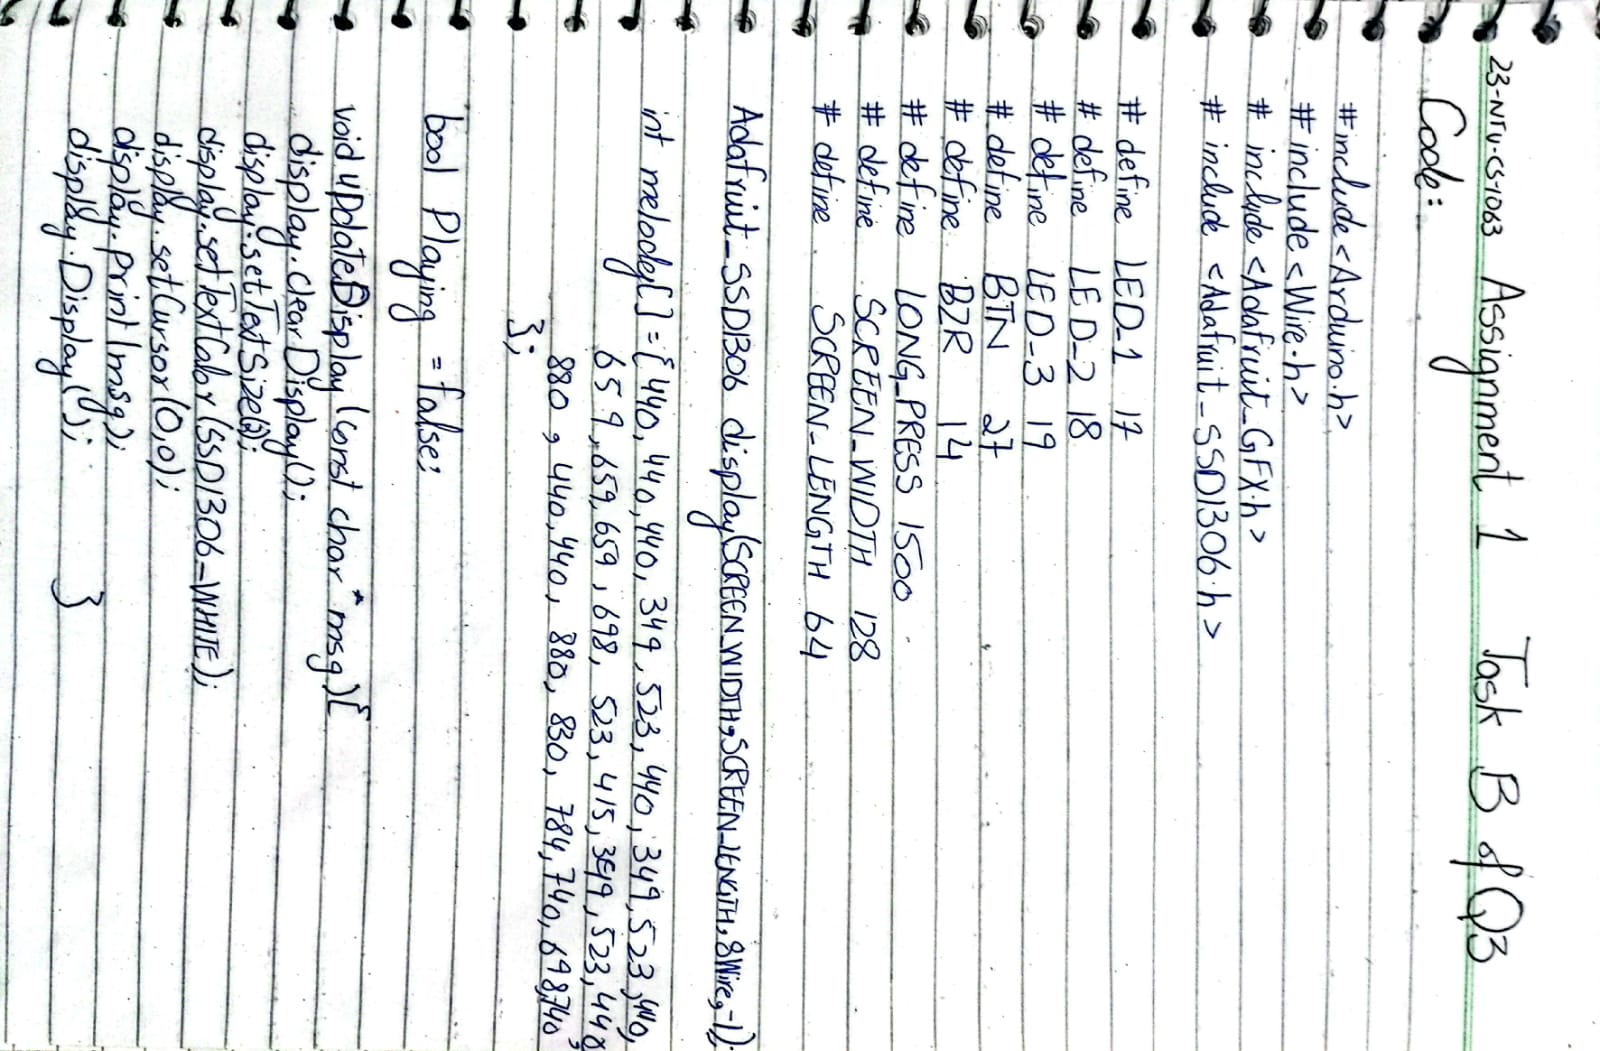 23-NTU-CS-1063 Assignment 1 Task B of Q3
Code:
#include<Arduino.h>
#include<Wire.h>
# include <Adafruit_GFX.h>
# include <Adafruit_SSD1306.h>
# define LED_1 17
# define LED_2 18
# define LED_3 19
# define BTN 27
# define BZR 14
# define LONG_PRESS 1500
# define SCREEN_WIDTH 128
# define SCREEN_LENGTH 64
Adafruit_SSD1306 display(SCREEN_WIDTH,SCREEN_LENGTH,&Wire,-1);
int melodey[] = {440, 440, 440, 349, 523, 440, 349, 523, 440,
659, 659, 659, 698, 523, 415, 349, 523, 440,
880, 440, 440, 880, 830, 784, 740, 698, 740,
};
bool Playing = false;
void upDateDisplay(const char* msg){
display.clearDisplay();
display.setTextSize(2);
display.setTextColor(SSD1306_WHITE);
display.setCursor(0,0);
display.print(msg);
display.Display(); }